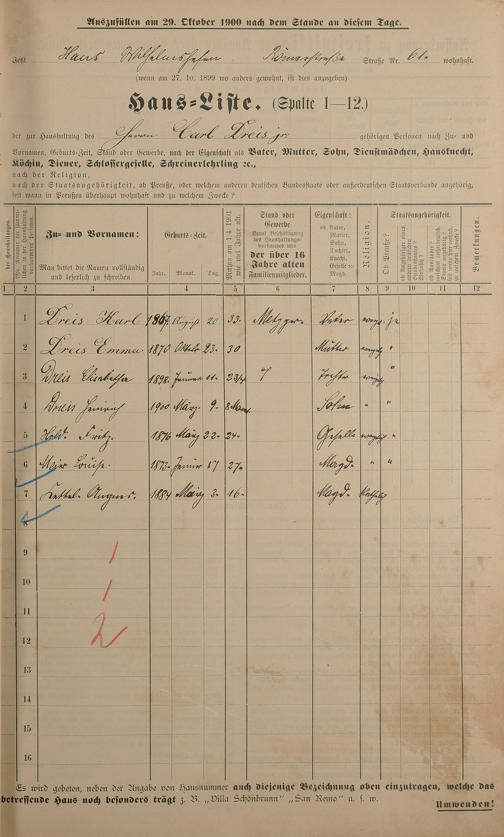 Auszufüllen am 29. Oktober 1900 nach dem Stande an diesem Tage.
Jetzt Haus Wilhelmshafen Römerstraße Straße Nr. 61. wohnhaft.
(wenn am 27. 10. 1899 wo anders gewohnt, ist dies anzugeben)
Haus-Liste. (Spalte 1—12.)
der zur Haushaltung des Herrn Carl Dreis jr gehörigen Personen nach Zu- und
Vornamen, Geburts-Zeit, Stand oder Gewerbe, nach der Eigenschaft als Vater, Mutter, Sohn, Dienstmädchen, Hausknecht,
Köchin, Diener, Schlossergeselle, Schreinerlehrling ꝛc.,
nach der Religion,
nach der Staatsangehörigkeit, ob Preuße, oder welchem anderen deutschen Bundesstaate oder außerdeutschen Staatsverbande angehörig,
seit wann in Preußen überhaupt wohnhaft und zu welchem Zweck?
Zu- und Vornamen: Geburts-Zeit. Stand oder Gewerbe der über 16 Jahre alten Familienmitglieder. Eigenschaft: Religion. Staatsangehörigkeit. Bemerkungen.
Man bittet die Namen vollständig und leserlich zu schreiben. Jahr. Monat. Tag. Ob Preuße?
1 2 3 4 5 6 7 8 9 10 11 12
1 Dreis Karl 1867 August 20 33. Metzger Vater evang. ja
2 Dreis Emma 1870 Oktober 23. 30 Mutter evangl. "
3 Dreis Elisabetha 1898. Januar 11. 2 3/4 Tochter evangl. "
4 Dreis Heinrich 1900 März. 9. 8 Mon. Sohn " "
5 Fritz. 1876 März 22. 24. Geselle evanglich "
6 Meier Louise. 1873. Januar 17 27. Magd. " "
7 1884 März 3. 16. Magd. Katholisch
8
9
10
11
12
13
14
15
16
1
1
2
Es wird gebeten, neben der Angabe von Hausnummer auch diejenige Bezeichnung oben einzutragen, welche das
betreffende Haus noch besonders trägt z. B. „Villa Schönbrunn" „San Remo" u. s. w.
Umwenden!